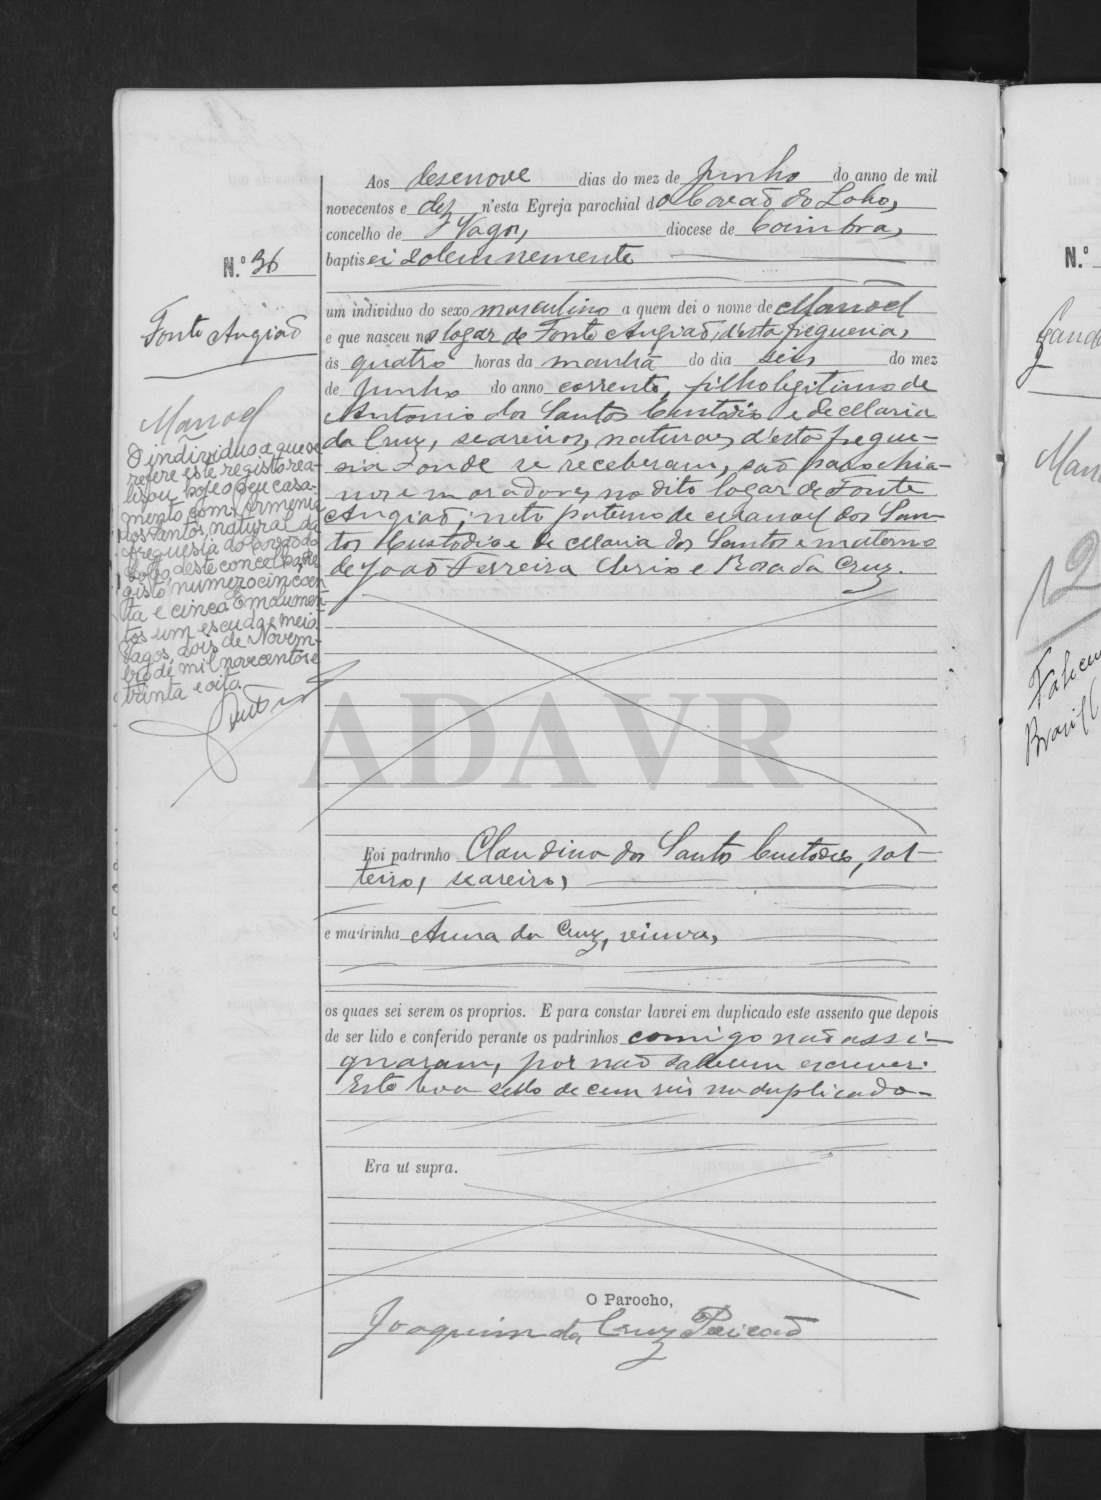 Aos desenove dias do mez de Junho do anno de mil
novecentos e dez n'esta Egreja parochial do Covão do Lobo,
concelho de Vagos, diocese de Coimbra,
N.º 36
baptisei solemnemente
Fonte Angião
um individuo do sexo masculino a quem dei o nome de Manoel
e que nasceu no logar de Fonte Angião, d'esta freguesia,
ás quatro horas da manhã do dia seis do mez
de Junho do anno corrente, filho legitimo de
Antonio dos Santos Custodio e de Maria
da Cruz, seareiros, naturaes d'esta fregue-
sia onde se receberam, são parochia-
nos e moradores no dito logar de Fonte
Angião; neto paterno de Manoel dos San-
tos Custodio e de Maria dos Santos e materno
de João Ferreira e Rosa da Cruz.
Manoel
O individuo a que se
refere este registo rea-
lisou hoje o seu casa-
mento com Armenia
dos Santos, natural da
freguesia do Covão do
Lobo, deste concelho, re-
gisto numero cincoen-
ta e cinco. Emolumen-
tos um escudo e meio.
Vagos, dois de Novem-
bro de mil novecentos e
trinta e oito.
ADAVR
Foi padrinho Claudino dos Santos Custodio, sol-
teiro, seareiro,
e madrinha Anna da Cruz, viuva,
os quaes sei serem os proprios. E para constar lavrei em duplicado este assento que depois
de ser lido e conferido perante os padrinhos comigo não assi-
gnaram, por não saberem escrever.
Este leva sello de cem reis no duplicado.
Era ut supra.
O Parocho,
Joaquim da Cruz
N.º
Fonte
Man
12
Falec
Brasil